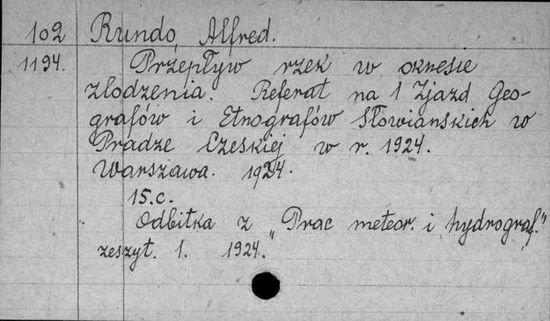 102 Rundo, Alfred.
1194. Przepływ rzek w okresie
zlodzenia. Referat na 1 Zjazd Geo-
grafów i Etnografów Słowiańskich w
Pradze Czeskiej w r. 1924.
Warszawa. 1924.
15.c.
Odbitka z „Prac meteor. i hydrograf."
zeszyt. 1. 1924.